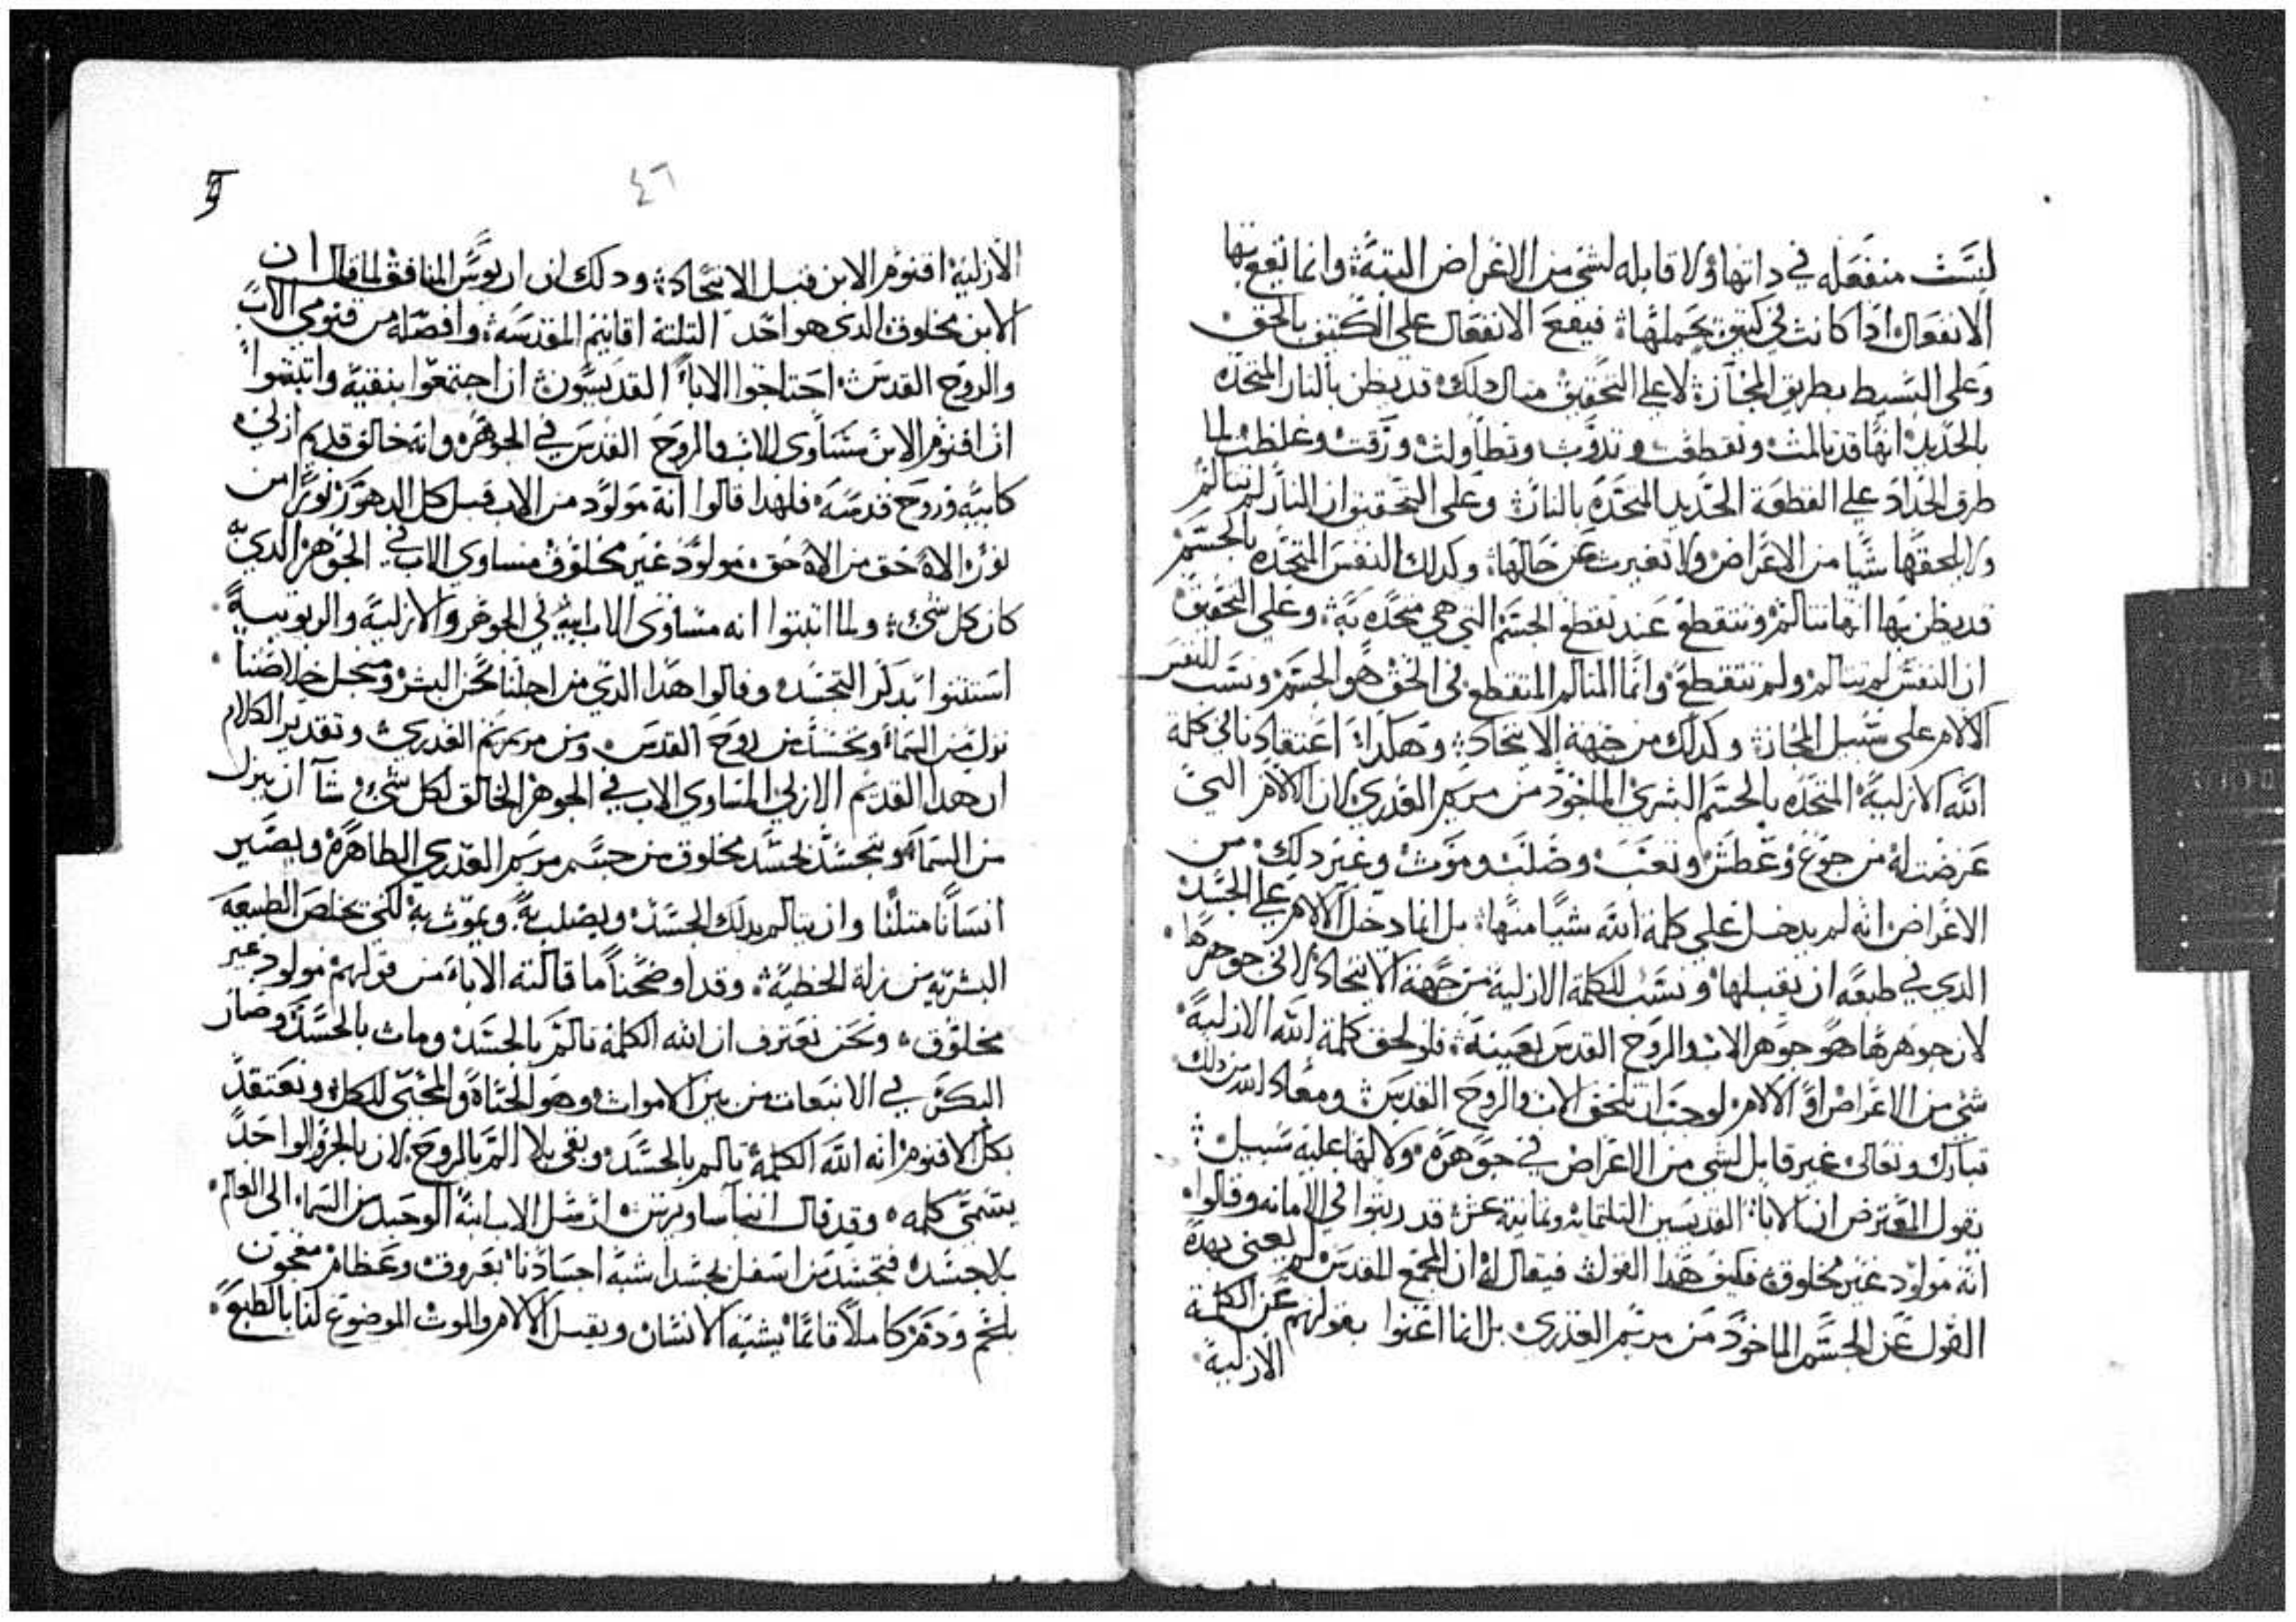 ليست منفعله في داتها ولا قابله لشي من الاعراض البتة وانما تقع بها
الانفعال ادا كانت في كتيف يحملها فيقع الانفعال على الكتيف بالحق
وعلى البسيط بطريق المجاز لا على التحقيق متال دلك قد يظن بالنار المتحده
بالحديد انها قد تالمت وتقطفت وتدوبت وتطاولت ورقت وغلظت لما
طرق الحداد على القطعة الحديد المتحده بالنار وعلى التحقيق ان النار لم تتالم
ولا لحقها شيا من الاعراض ولا تغيرت عن حالها وكدلك النفس المتحده بالجسم
قد يظن بها انها تتالم وتتقطع عند تقطع الجسم التي هي متحده به وعلى التحقيق
ان النفس لم تتالم ولم تتقطع وانما المتالم المتقطع في الحق هو الجسم ونسب للنفس
الالام على سبيل المجاز وكدلك من جهة الاتحاد وهكدا اعتقادنا في كلمة
الله الازلية المتحده بالجسم البشري الماخود من مريم العدري لان الالام التي
عرضت له من جوع وعطش وتعب وصلب وموت وغير دلك من
الاعراض انه لم يدخل على كلمة الله شيا منها بل انما دخل الالام على الجسد
الدي في طبعه ان يقبلها ونسب للكلمة الازلية من جهة الاتحاد لا في جوهرها
لان جوهرها هو جوهر الاب والروح القدس بعينة فلو لحق كلمة الله الازلية
شي من الاعراض او الالام لوجب ان تلحق الاب والروح القدس ومعاد الله من دلك
تبارك وتعالى غير قابل لشي من الاعراض في جوهره ولا لها عليه سبيل
يقول المعترض ان الابا القديسين التلتماية وتمانية عشر قد رتبوا في الامانه وقالوا
انه مولود غير مخلوق فكيف هدا القول فيقال له ان المجمع المقدس لم يعني بهدة
القول عن الجسم الماخود من مريم العدري بل انما اعنوا بقولهم عن الكلمة
الازلية
٤٦
الازلية اقنوم الابن قبل الاتحاد ودلك لان اريوس المنافق لما قال ان
الابن مخلوق الدي هو احد التلتة اقانيم المقدسه وافصله من قنومي الاب
والروح القدس احتاجوا الابا القديسون ان اجتمعوا بنقية واتبتوا
ان اقنوم الابن متساوي للاب والروح القدس في الجوهر وانه خالق قديم ازلي
كابيه وروح قدسه فلهدا قالوا انه مولود من الاب قبل كل الدهور نورا من
نور الاه حق من الاه حق مولود غير مخلوق مساوي الاب في الجوهر الدي به
كان كل شي ولما اتبتوا انه مساوي الاب ابيه في الجوهر والازلية والربوبية
استتنوا بدكر التجسد وقالوا هدا الدي من اجلنا نحن البشر ومن اجل خلاصنا
نزل من السما وتجسد من روح القدس ومن مريم العدري وتقدير الكلام
ان هدا القديم الازلي المساوي الاب في الجوهر الخالق لكل شي شا ان ينزل
من السما ويتجسد بجسد مخلوق من جسم مريم العدري الطاهرة ويصير
انسانا متلنا وان يتالم بدلك الجسد ويصلب به ويموت به لكي يخلص الطبيعة
البشرية من زلة الخطية وقد اوضحنا ما قالته الابا من قولهم مولود غير
مخلوق ونحن نعترف ان الله الكلمة تالم بالجسد ومات بالجسد وصار
البكر في الانبعات من بين الاموات وهو الحياة والمحيي للكل ونعتقد
بكل الاقنوم انه الله الكلمة تالم بالجسد وبقي بلا الم بالروح لان بالجزو الواحد
يسمى كلمه وقد قال اتناسيوس ان نسل الاب ابنه الوحيد من السما الى العالم
بلا جسد فتجسد من اسفل بجسدا شبه اجسادنا بعروق وعظام معجون
بلحم ودم كاملا قائما يشبه الانسان ويقبل الالام والموت الموضوع لنا بالطبع